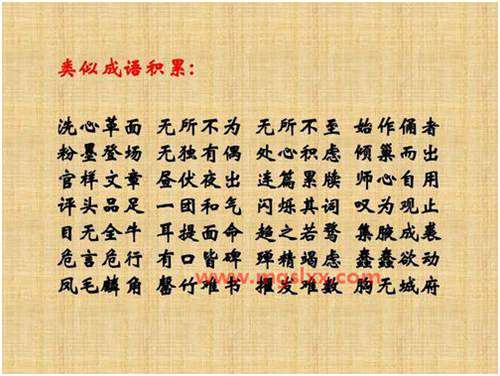 类似成语积累:
洗心革面 无所不为 无所不至 始作俑者
粉墨登场 无独有偶 处心积虑 倾巢而出
官样文章 昼伏夜出 连篇累牍 师心自用
评头品足 一团和气 闪烁其词 叹为观止
目无全牛 耳提面命 趋之若鹜 集腋成裘
危言危行 有口皆碑 殚精竭虑 蠢蠢欲动
www.mgslxx.com
凤毛麟角 罄竹难书 擢发难数 胸无城府